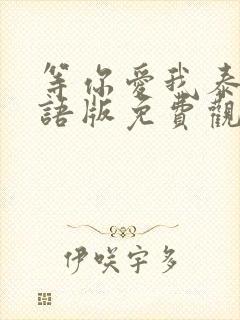 等你愛我泰
語版免費觀
伊咲宇多